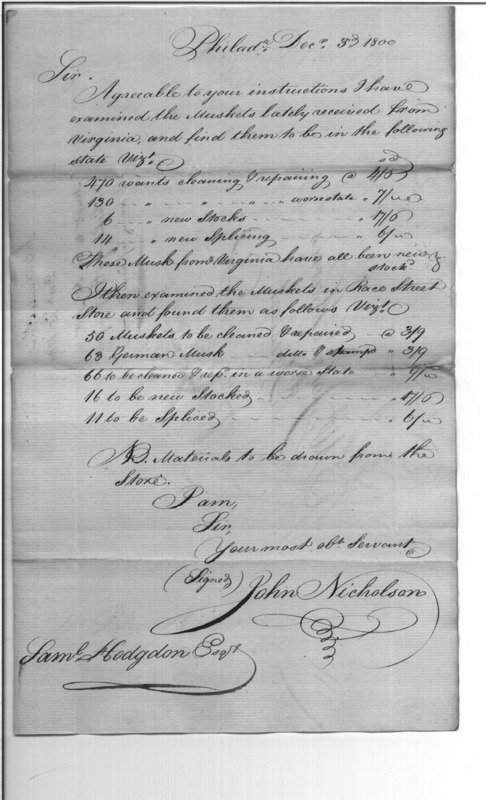 Philad.ª Decr. 3d 1800
Sir.
Agreeable to your instructions I have
examined the Muskets lately received from
Virginia, and find them to be in the following
state Vizt.
470 wants cleaning & repairing @ 4/6
130 " " " " worse state " 7/"
6 " new Stocks " 17/6
14 " new Splicing " 6/"
These Musk from Virginia have all been new
stockd.
I then examined the Muskets in Race Street
Store and found them as follows Vizt.
50 Muskets to be cleaned & repaired @ 3/9
63 German Musk ditto & stampd " 3/9
66 to be cleaned & rep. in a worse State "
16 to be new Stocked " 17/6
11 to be Spliced " 6/"
NB. Materials to be drawn from the
Store.
I am,
Sir,
Your most obt. Servant
(Signed) John Nicholson
Saml. Hodgdon Esqr.